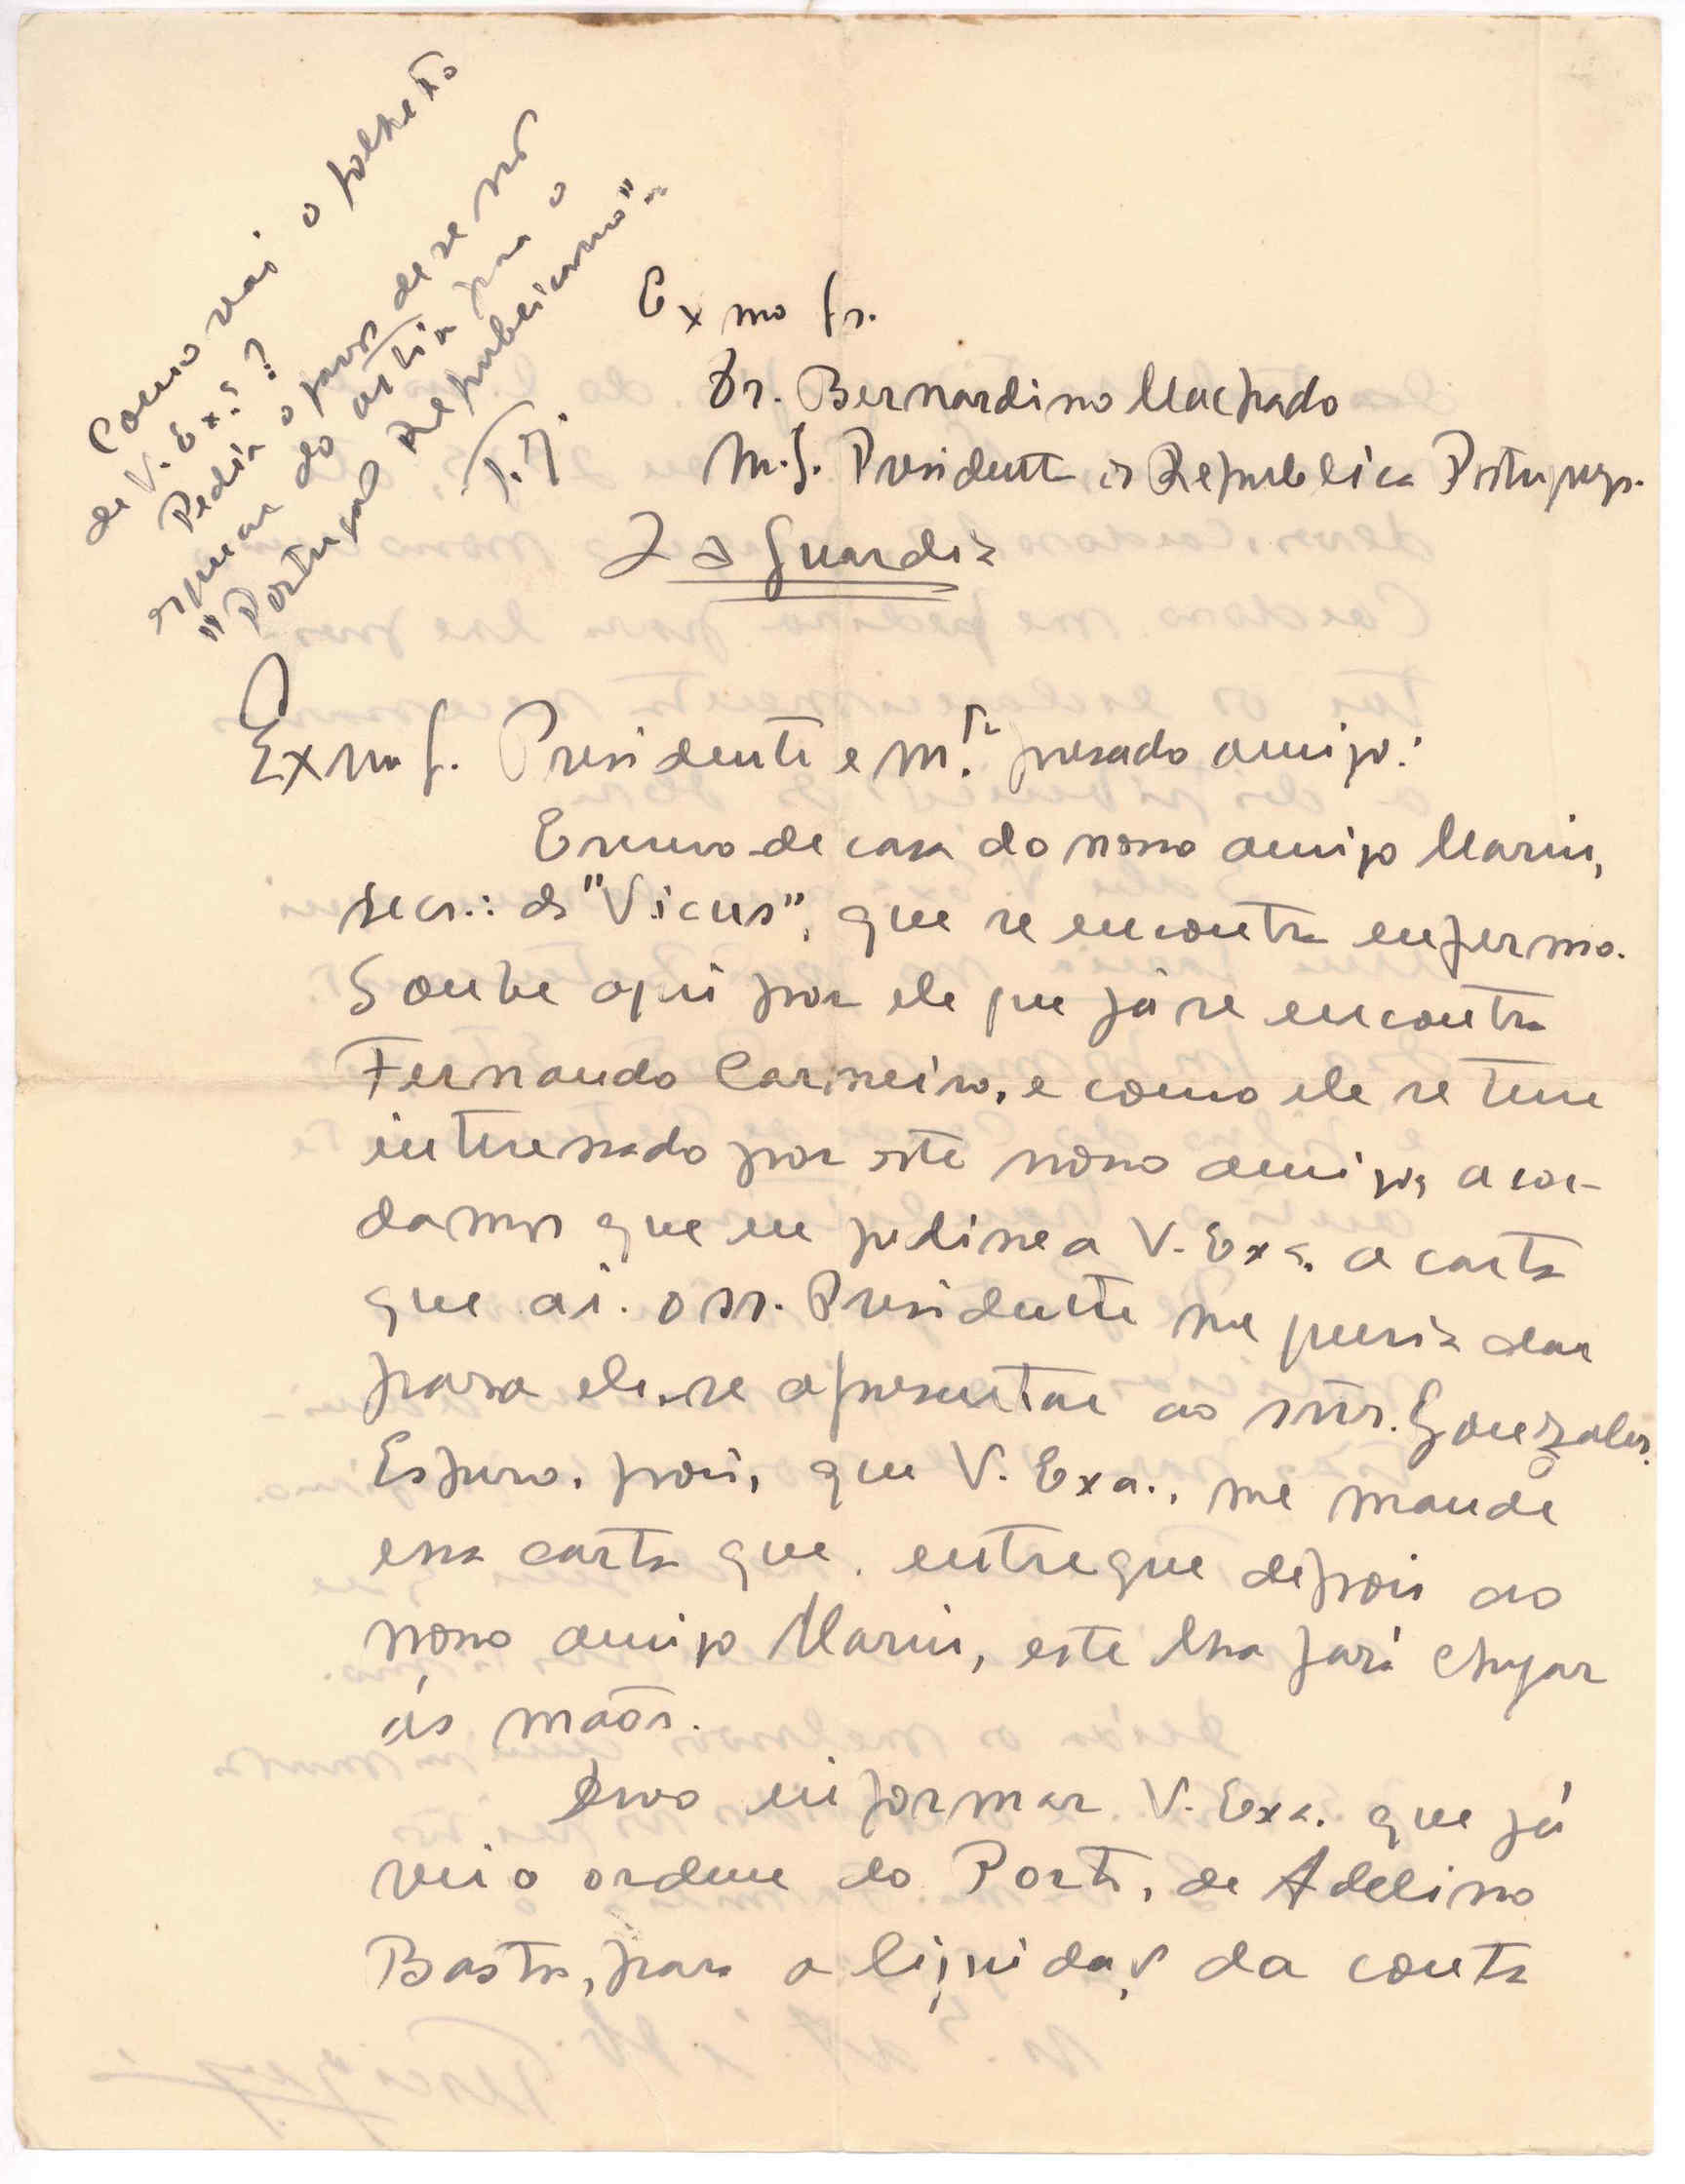 Como vai o folheto
de V. Exª?
Pedia o favor de se não
esquecer do artigo para o
"Portugal Republicano".
T. J.
Exmo Sr.
Dr. Bernardino Machado
M. D. Presidente da Republica Portuguesa.
La Guardia
Exmo Sr. Presidente e m.to presado amigo:
Escrevo de casa do nosso amigo Marin,
secr.: da "Vicus", que se encontra enfermo.
Soube aqui por ele que já se encontra
Fernando Carneiro, e como ele se tem
interessado por este nosso amigo, acor-
damos que eu pedisse a V. Exa. a carta
que ai o sr. Presidente me queria dar
para ele se apresentar ao snr. Gonzales.
Espero, pois, que V. Exa., me mande
essa carta que, entregue depois ao
nosso amigo Marin, este lha fará chegar
ás mãos.
Devo informar V. Exa. que já
veio ordem do Porto, de Adelino
Bastos, para a liquidação da conta